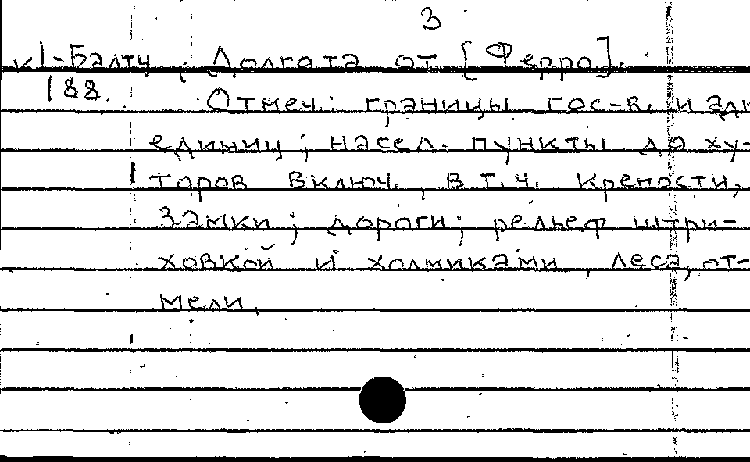 3
к1-Балту ; Долгота от [Ферро].
188.
Отмеч.: границы гос-в. и адм
единиц ; насел. пункты до ху-
торов включ., в т.ч. крепости,
замки ; дороги ; рельеф штри-
ховкой и холмиками, леса, от-
мели.